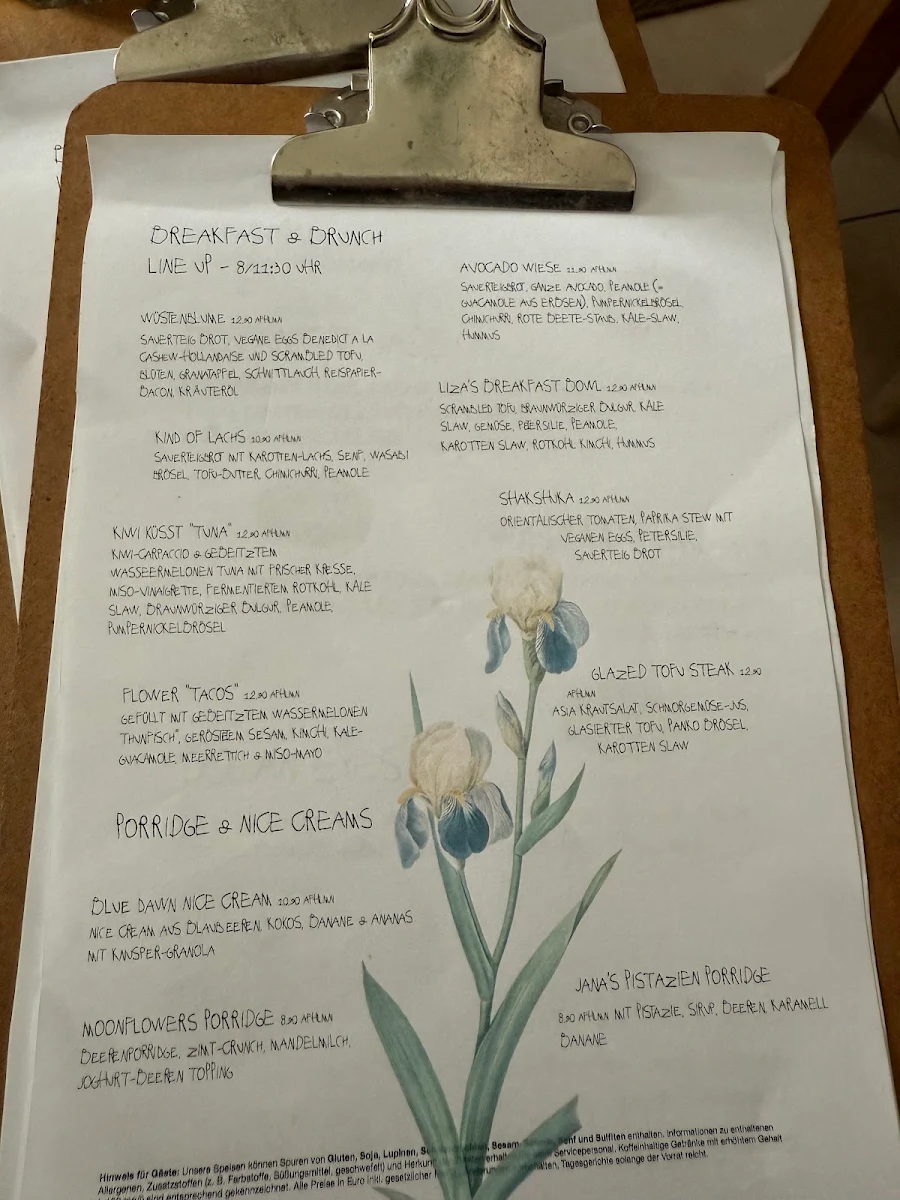 BREAKFAST & BRUNCH
LINE UP - 8/11:30 UHR
WÜSTENBLUME 12.90 AFHLMN
SAUERTEIG BROT, VEGANE EGGS BENEDICT A LA
CASHEW-HOLLANDAISE UND SCRAMBLED TOFU,
BLÜTEN, GRANATAPFEL, SCHNITTLAUCH, REISPAPIER-
BACON, KRÄUTERÖL
KIND OF LACHS 10.90 AFHLMN
SAUERTEIGBROT MIT KAROTTEN-LACHS, SENF, WASABI
BRÖSEL, TOFU-BUTTER, CHIMICHURRI, PEAMOLE
KIWI KÜSST "TUNA" 12.90 AFHLMN
KIWI-CARPACCIO & GEBEITZTEM
WASSEERMELONEN TUNA MIT FRISCHER KRESSE,
MISO-VINAIGRETTE, FERMENTIERTEM ROTKOHL, KALE
SLAW, BRAUNWÜRZIGER BULGUR, PEAMOLE,
PUMPERNICKELBRÖSEL
FLOWER "TACOS" 12.90 AFHLMN
GEFÜLLT MIT GEBEITZTEM WASSERMELONEN
THUNFISCH", GERÖSTETEM SESAM, KIMCHI, KALE-
GUACAMOLE, MEERRETTICH & MISO-MAYO
AVOCADO WIESE 11.90 AFHLMN
SAUERTEIGBROT, GANZE AVOCADO, PEAMOLE (=
GUACAMOLE AUS ERBSEN), PUMPERNICKELBRÖSEL,
CHIMICHURRI, ROTE BEETE-STAUB, KALE-SLAW,
HUMMUS
LIZA'S BREAKFAST BOWL 12.90 AFHLMN
SCRAMBLED TOFU, BRAUNWÜRZIGER BULGUR, KALE
SLAW, GEMÜSE, PETERSILIE, PEAMOLE,
KAROTTEN SLAW, ROTKOHL KIMCHI, HUMMUS
SHAKSHUKA 12.90 AFHLMN
ORIENTALISCHER TOMATEN, PAPRIKA STEW MIT
VEGANEN EGGS, PETERSILIE,
SAUERTEIG BROT
GLAZED TOFU STEAK 12.90
AFHLMN
ASIA KRAUTSALAT, SCHMORGEMÜSE-JUS,
GLASIERTER TOFU, PANKO BRÖSEL,
KAROTTEN SLAW
PORRIDGE & NICE CREAMS
BLUE DAWN NICE CREAM 10.90 AFHLMN
NICE CREAM AUS BLAUBEEREN, KOKOS, BANANE & ANANAS
MIT KNUSPER-GRANOLA
MOONFLOWERS PORRIDGE 8.90 AFHLMN
BEERENPORRIDGE, ZIMT-CRUNCH, MANDELMILCH,
JOGHURT-BEEREN TOPPING
JANA'S PISTAZIEN PORRIDGE
8.90 AFHLMN MIT PISTAZIE, SIRUP, BEEREN, KARAMELL
BANANE
Hinweis für Gäste: Unsere Speisen können Spuren von Gluten, Soja, Lupinen, Senf und Sulfiten enthalten. Informationen zu enthaltenen
Allergenen, Zusatzstoffen (z. B. Farbstoffe, Süßungsmittel, geschwefelt) und Servicepersonal. Koffeinhaltige Getränke mit erhöhtem Gehalt
sind entsprechend gekennzeichnet. Alle Preise in Euro inkl. gesetzlicher Tagesgerichte solange der Vorrat reicht.